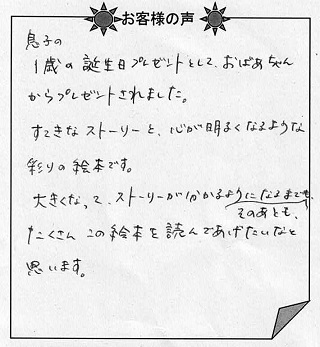 お客様の声
息子の
1歳の誕生日プレゼントとして、おばあちゃん
からプレゼントされました。
すてきなストーリーと、心が明るくなるような
彩りの絵本です。
大きくなって、ストーリーが分かるようになるまでも、
そのあとも、
たくさんこの絵本を読んであげたいなと
思います。